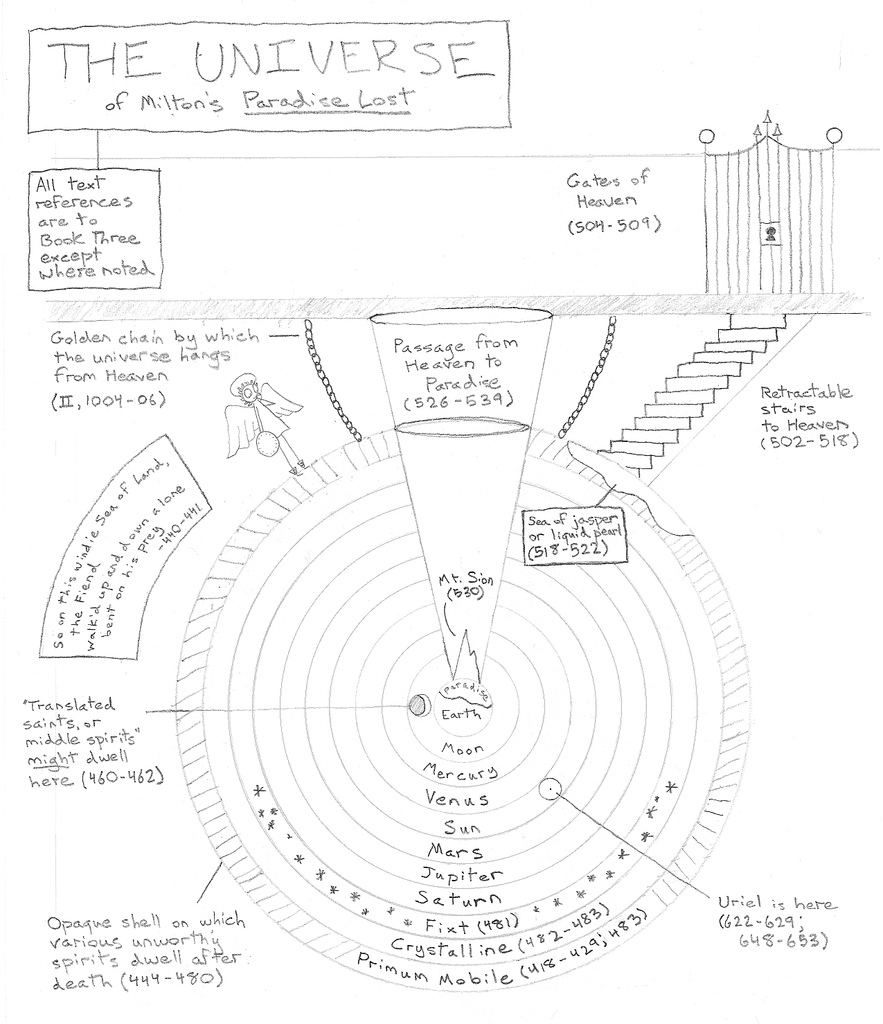 THE UNIVERSE
of Milton's Paradise Lost
All text
references
are to
Book Three
except
where noted
Gates of
Heaven
(504-509)
Golden chain by which
the universe hangs
from Heaven
(II, 1004-06)
Passage from
Heaven to
Paradise
(526-539)
Retractable
stairs
to Heaven
(502-518)
So on this windie Sea of Land,
the Fiend
Walk'd up and down alone
bent on his prey
-440-441
Sea of jasper
or liquid pearl
(518-522)
Mt. Sion
(530)
Paradise
Earth
"Translated
saints, or
middle spirits"
might dwell
here (460-462)
Moon
Mercury
Venus
Sun
Mars
Jupiter
Saturn
Fixt (481)
Crystalline (482-483)
Primum Mobile (418-429; 483)
Uriel is here
(622-629;
648-653)
Opaque shell on which
various unworthy
spirits dwell after
death (444-480)